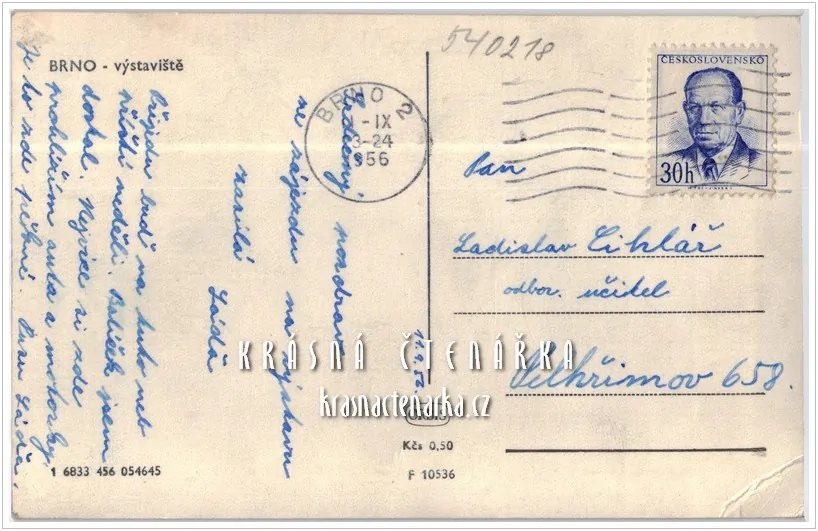 540218
BRNO - výstaviště
ČESKOSLOVENSKO
30h
BRNO 2
-IX
3-24
1956
Srdečný pozdrav
ze zájezdu na výstavu
zasílá
Láďa
Přijedu buď na tuto neb
příští neděli. Balíček jsem
dostal. Nejvíce si zde
prohlížím auta a motocykly.
Je to zde pěkné. Láďa.
Pan
Ladislav Cihlář
odbor. učitel
Pelhřimov 658.
KRÁSNÁ ČTENÁŘKA
krasnactenarka.cz
ORBIS
Kčs 0,50
F 10536
1 6833 456 054645